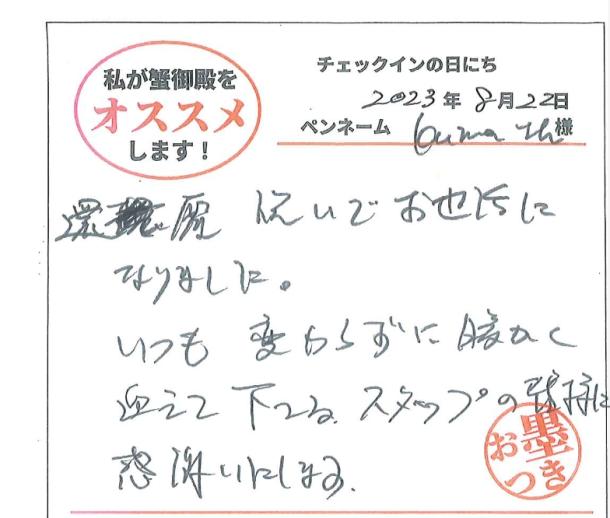 私が蟹御殿を
オススメ
します!
チェックインの日にち
2023年 8月22日
ペンネーム 様
還暦 祝いでお世話に
なりました。
いつも変わらずに暖かく
迎えて下さる、スタッフの皆様に
感謝いたします。
お墨つき